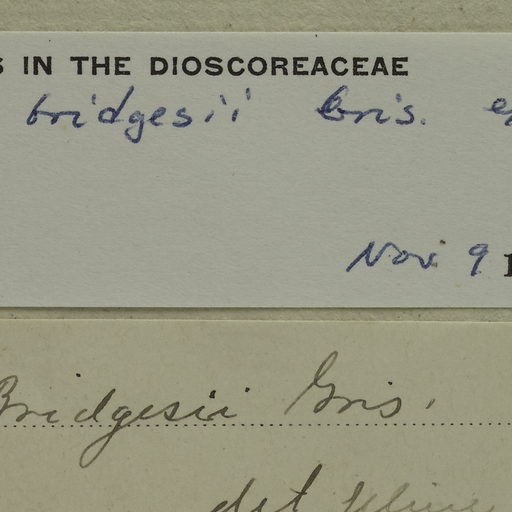 S IN THE DIOSCOREACEAE
bridgesii Gris. e
Nov 9 1
Bridgesii Gris.
det